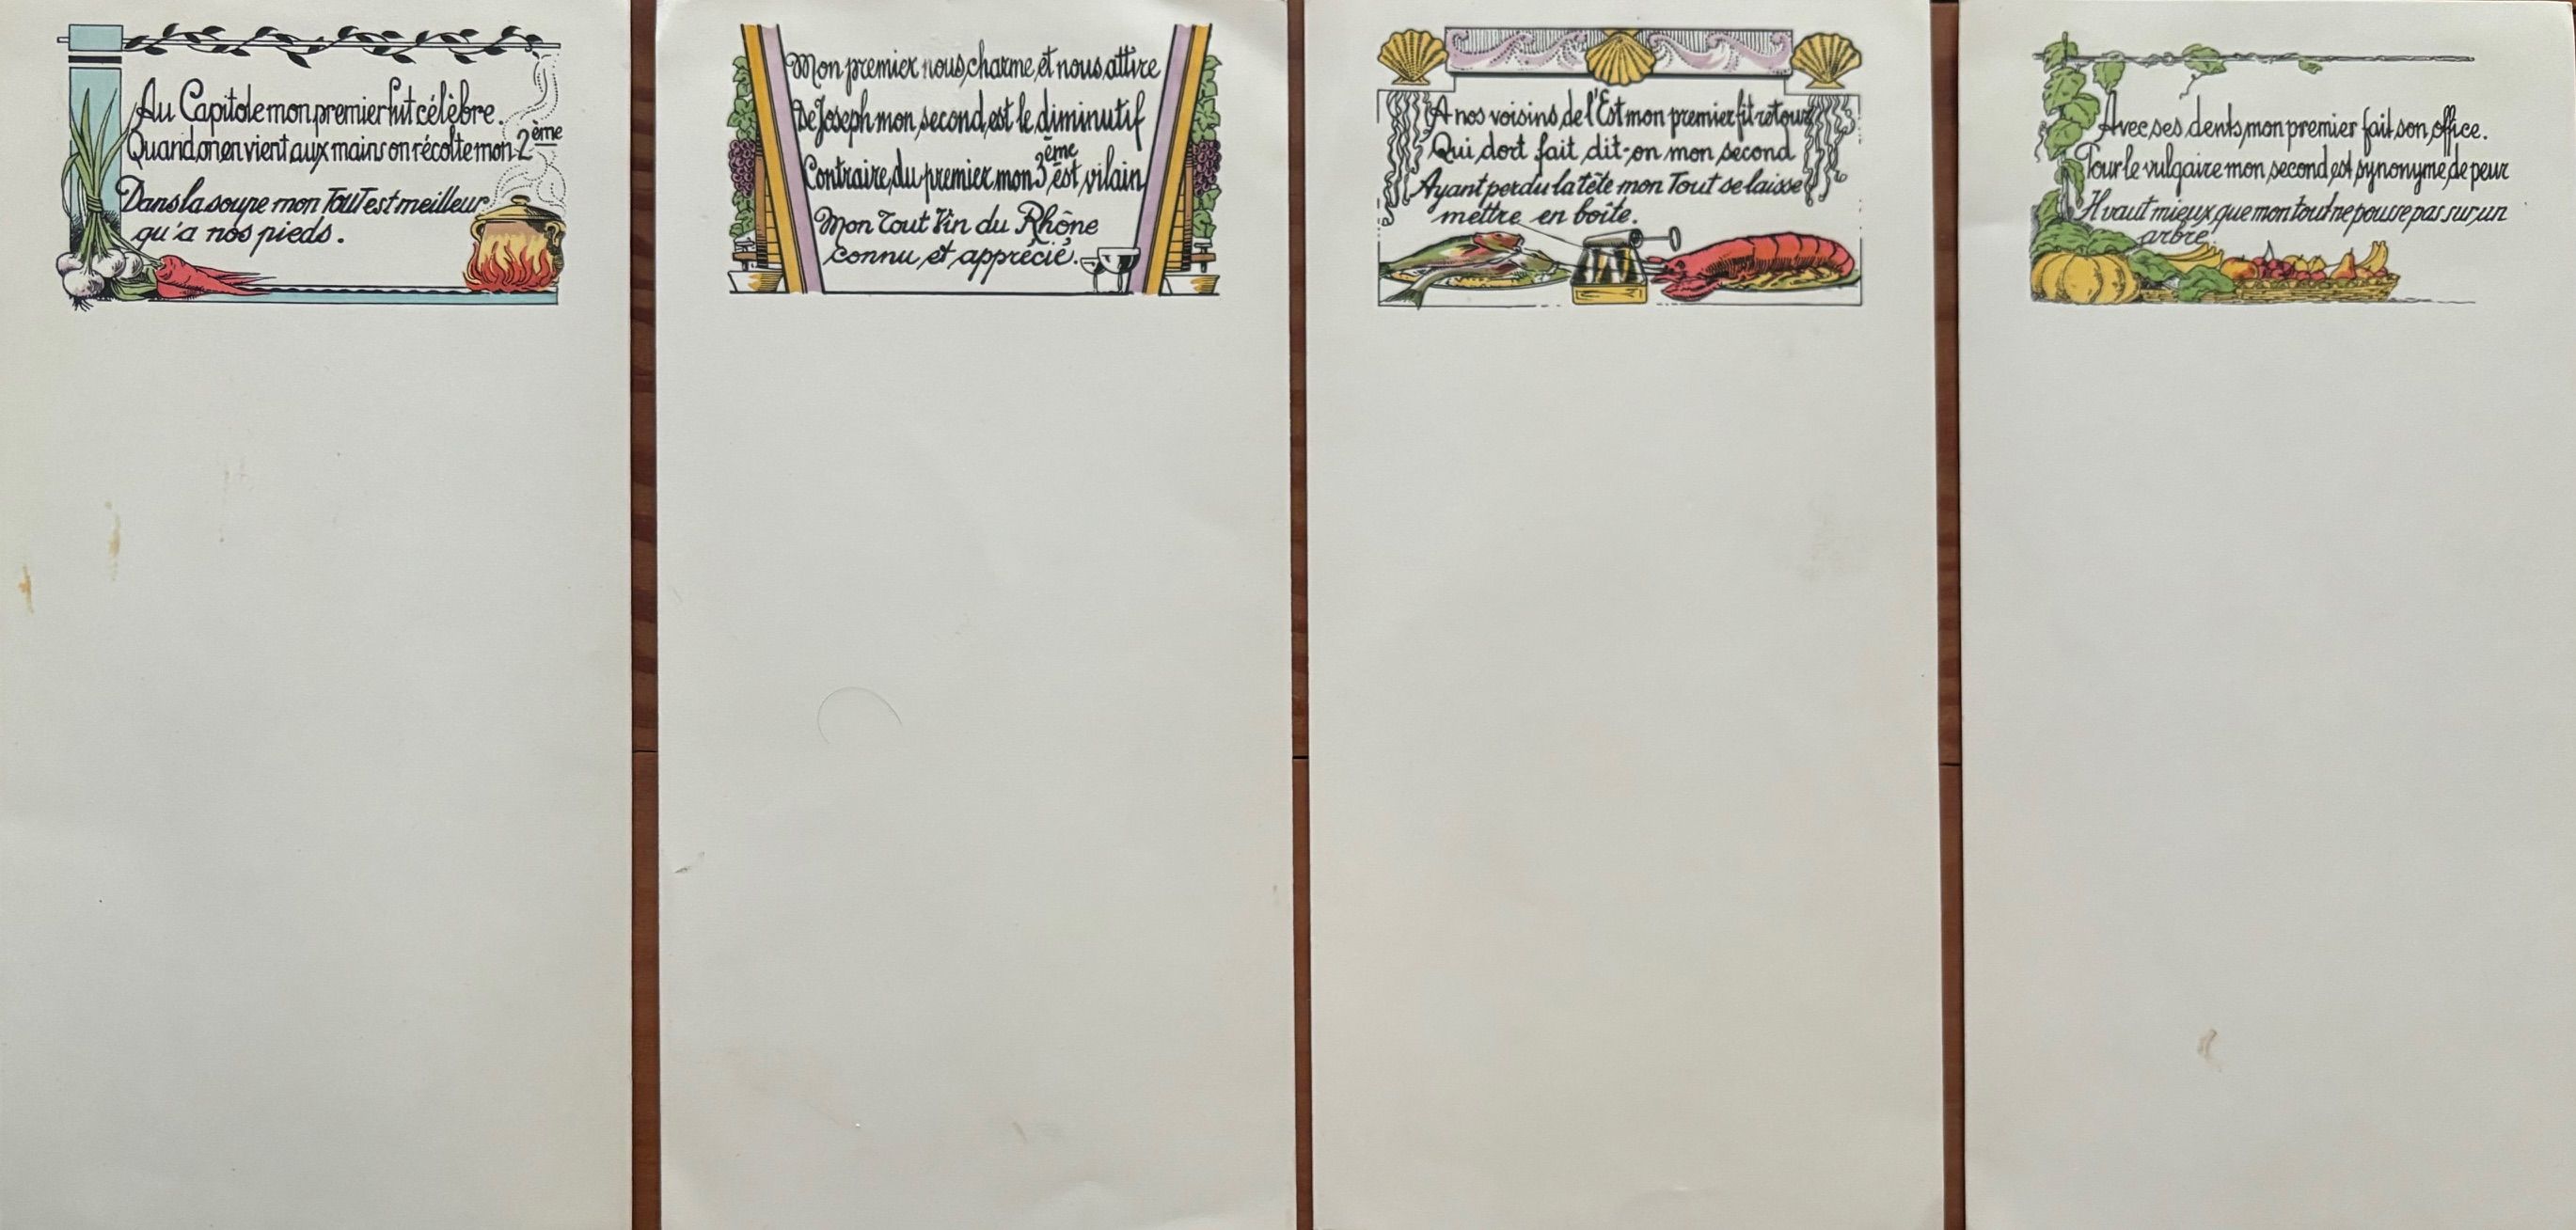 Au Capitole mon premier fut célèbre.
Quand on en vient aux mains on récolte mon 2ème
Dans la soupe mon Tout est meilleur
qu'a nos pieds.
Mon premier nous charme et nous attire
De Joseph mon second est le diminutif
Contraire du premier mon 3ème est vilain
Mon Tout Vin du Rhône
connu et apprécié.
A nos voisins de l'Est mon premier fit retour
Qui dort fait dit-on mon second
Ayant perdu la tête mon Tout se laisse
mettre en boîte.
Avec ses dents mon premier fait son office.
Pour le vulgaire mon second est synonyme de peur
Il vaut mieux que mon tout ne pousse pas sur un
arbre.